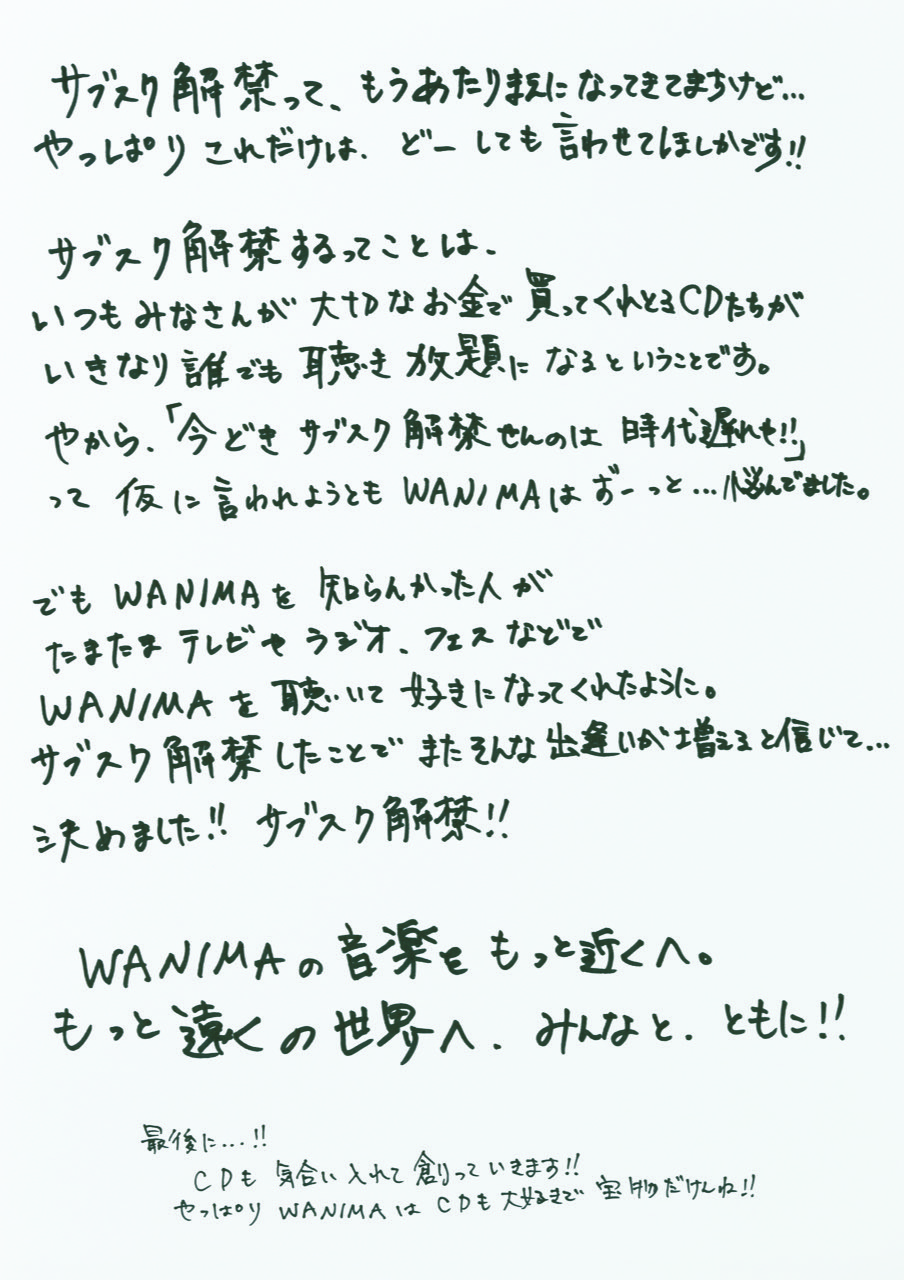 サブスク解禁って、もうあたりまえになってきてますけど…
やっぱりこれだけは、どーしても言わせてほしかです!!
サブスク解禁するってことは、
いつもみなさんが大切なお金で買ってくれとるCDたちが
いきなり誰でも聴き放題になるということです。
やから、「今どきサブスク解禁せんのは時代遅れも!!」
って仮に言われようともWANIMAはずーっと…悩んでました。
でもWANIMAを知らんかった人が
たまたまテレビやラジオ、フェスなどで
WANIMAを聴いて好きになってくれたように。
サブスク解禁したことでまたそんな出逢いが増えると信じて…
決めました!!サブスク解禁!!
WANIMAの音楽をもっと近くへ。
もっと遠くの世界へ、みんなと、ともに!!
最後に…!!
CDも気合い入れて創っていきます!!
やっぱりWANIMAはCDも大好きで宝物だけんね!!